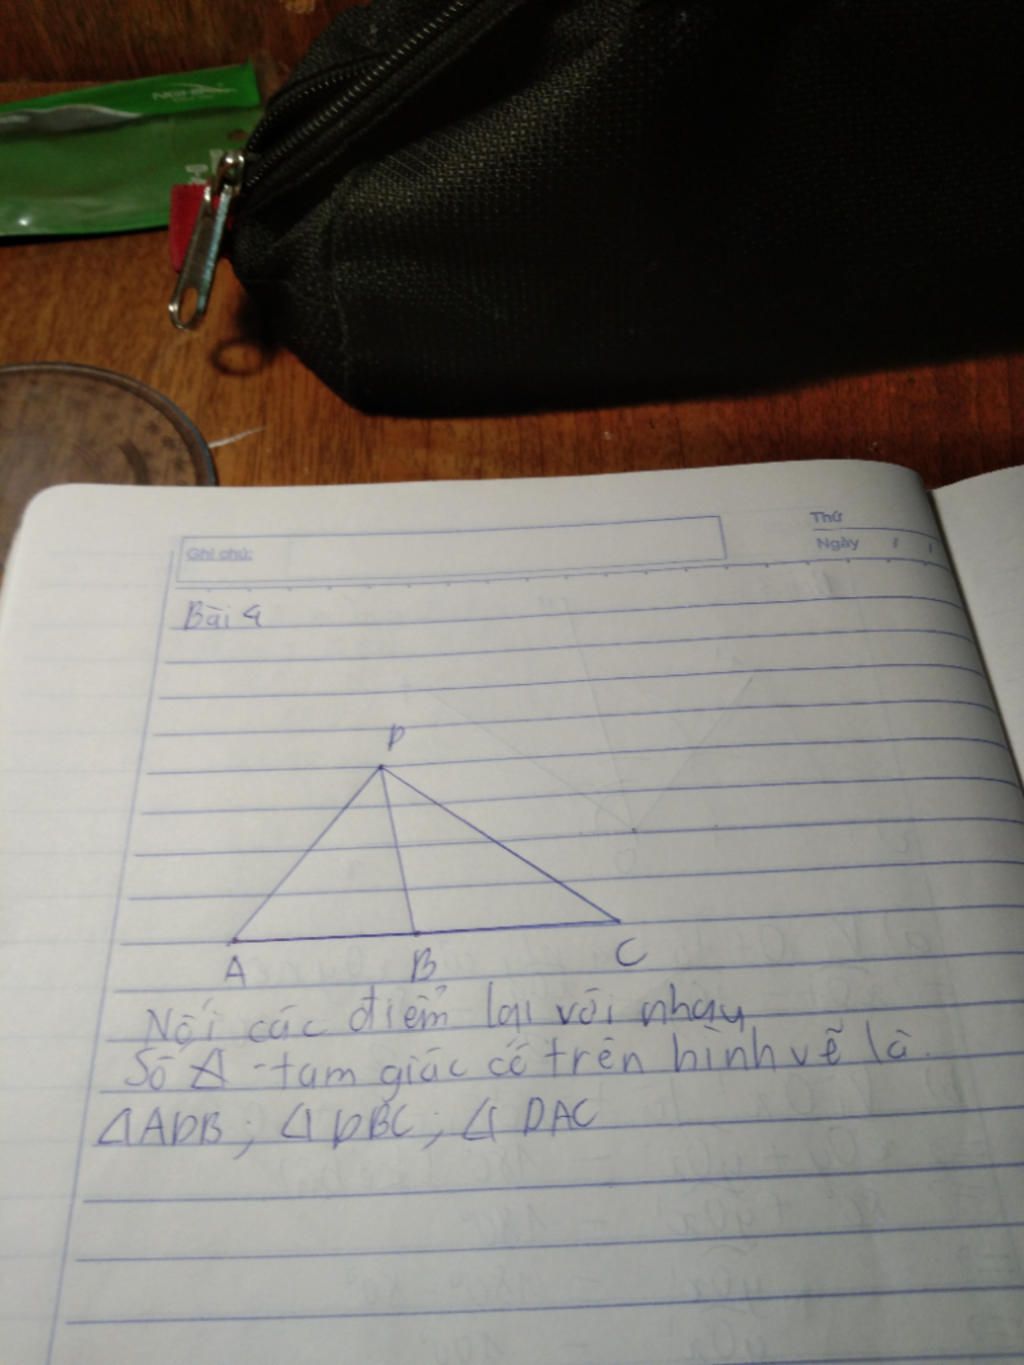 Ghi chú:
Thứ
Ngày / /
Bài 4
D
A
B
C
Nối các điểm lại với nhau
Số tam giác có trên hình vẽ là
△ADB; △DBC; △DAC